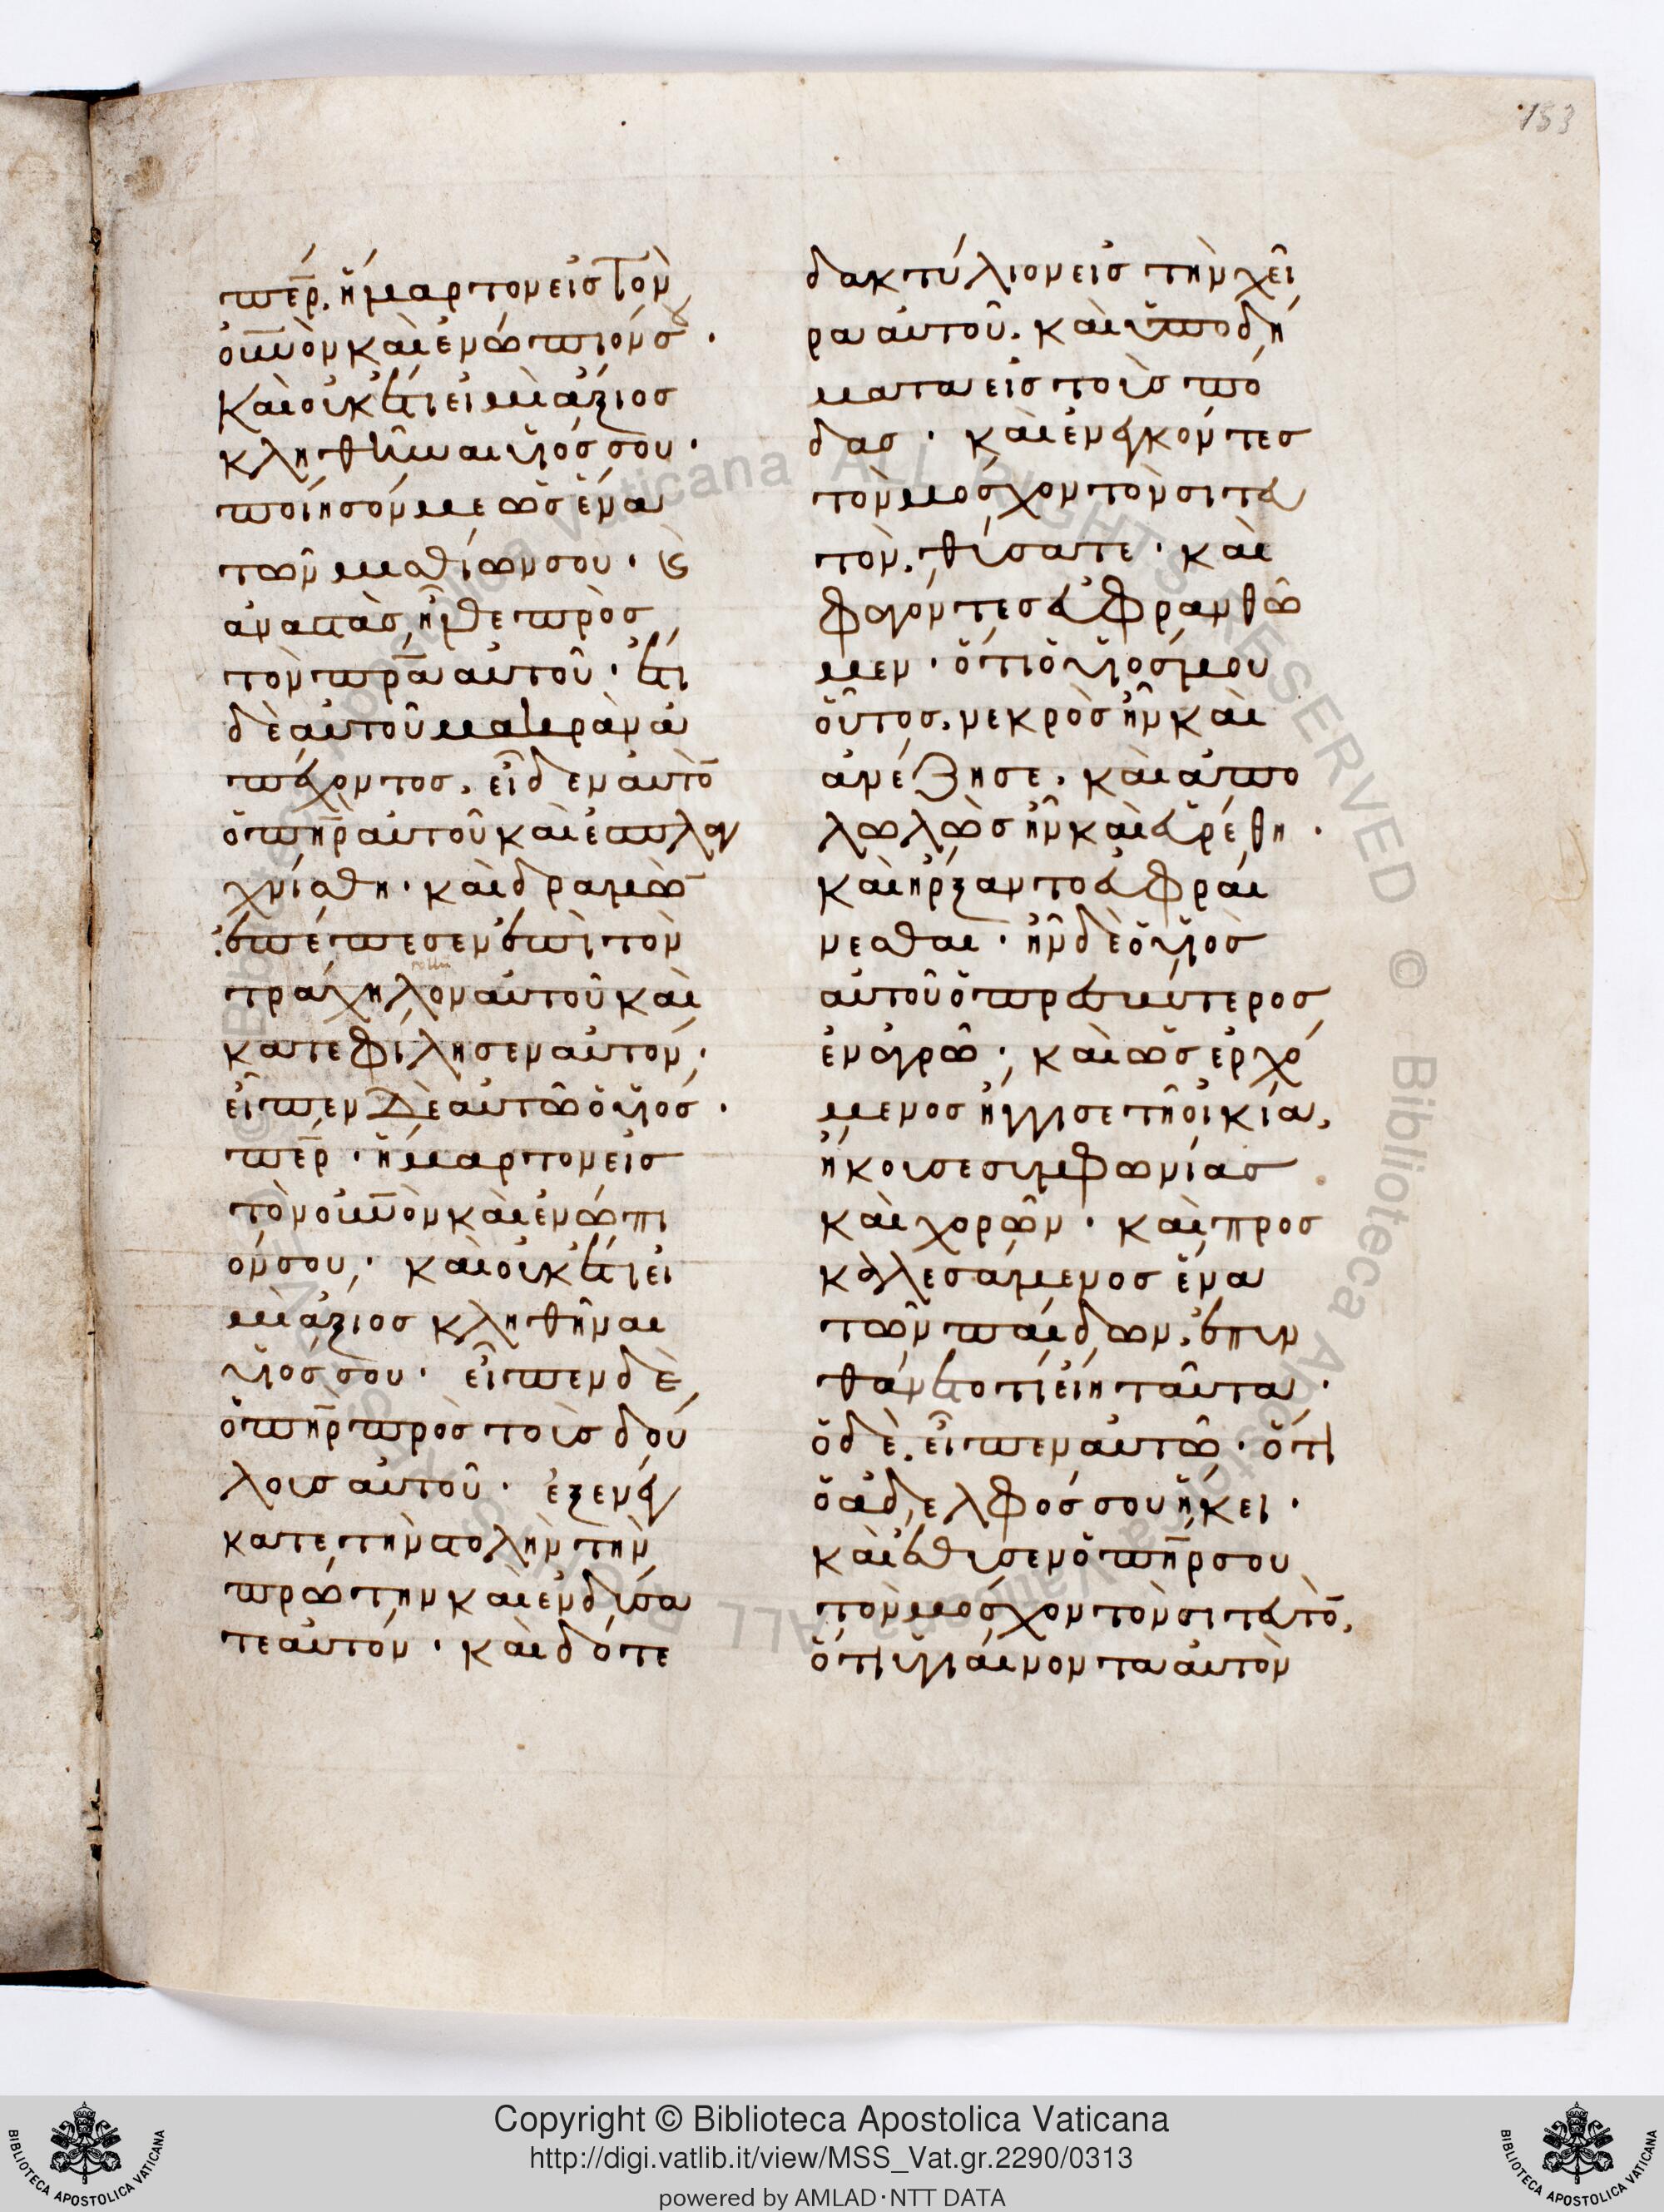 153
πε̅ρ. ἥμαρτον εἰς τὸν
ου̅νο̅ν καὶ ἐνώπιόν σου·
καὶ οὐκέτι εἰμὶ ἄξιος
κληθῆναι υἱός σου·
ποίησόν με ὡς ἕνα
τῶν μισθίων σου· καὶ
ἀναστὰς ἦλθε πρὸς
τὸν πρ̅α αὐτοῦ· ἔτι
δὲ αὐτοῦ μακρὰν ἀ
πέχοντος, εἶδεν αὐτὸ̅
ὁ πη̅ρ αὐτοῦ καὶ ἐσπλαγ
χνίσθη· καὶ δραμὼ̅
ἐπέπεσεν ἐπὶ τὸν
τράχηλον αὐτοῦ καὶ
κατεφίλησεν αὐτόν·
εἶπεν δὲ αὐτῶ ὁ υἱός·
πε̅ρ· ἥμαρτον εἰς
τὸν ου̅νο̅ν καὶ ἐνώπι
όν σου· καὶ οὐκέτι εἰ
μὶ ἄξιος κληθῆναι
υἱός σου· εἶπεν δὲ
ὁ πη̅ρ πρὸς τοὺς δού
λους αὐτοῦ· ἐξενέγ
κατε τὴν στολὴν τὴν
πρώτην καὶ ἐνδύσα
τε αὐτόν· καὶ δότε
δακτύλιον εἰς τὴν χεῖ
ρα αὐτοῦ. καὶ ὑποδή
ματα εἰς τοὺς πό
δας· καὶ ἐνέγκοντες
τὸν μόσχον τὸν σιτευ
τὸν, θύσατε· καὶ
φαγόντες εὐφρανθῶ
μεν· ὅτι ὁ υἱός μου
οὗτος, νεκρὸς ἦν καὶ
ἀνέζησε, καὶ ἀπο
λωλὼς ἦν καὶ εὑρέθη·
καὶ ἤρξαντο εὐφραί
νεσθαι· ἦν δὲ ὁ υἱὸς
αὐτοῦ ὁ πρεσβύτερος
ἐν ἀγρῶ· καὶ ὡς ἐρχό
μενος ἤγγισε τῆ οἰκία,
ἤκουσε συμφωνίας
καὶ χορῶν· καὶ προς
καλεσάμενος ἕνα
τῶν παίδων, ἐπυν
θάνετο τί εἴη ταῦτα·
ὁ δὲ. εἶπεν αὐτῶ· ὅτι
ὁ ἀδελφός σου ἥκει·
καὶ ἔθυσεν ὁ πη̅ρ σου
τὸν μόσχον τὸν σιτευτὸ̅,
ὅτι ὑγιαίνοντα αὐτὸν
Biblioteca Apostolica Vaticana ALL RIGHTS RESERVED ©
Copyright © Biblioteca Apostolica Vaticana
http://digi.vatlib.it/view/MSS_Vat.gr.2290/0313
powered by AMLAD·NTT DATA
BIBLIOTECA APOSTOLICA VATICANA
BIBLIOTECA APOSTOLICA VATICANA